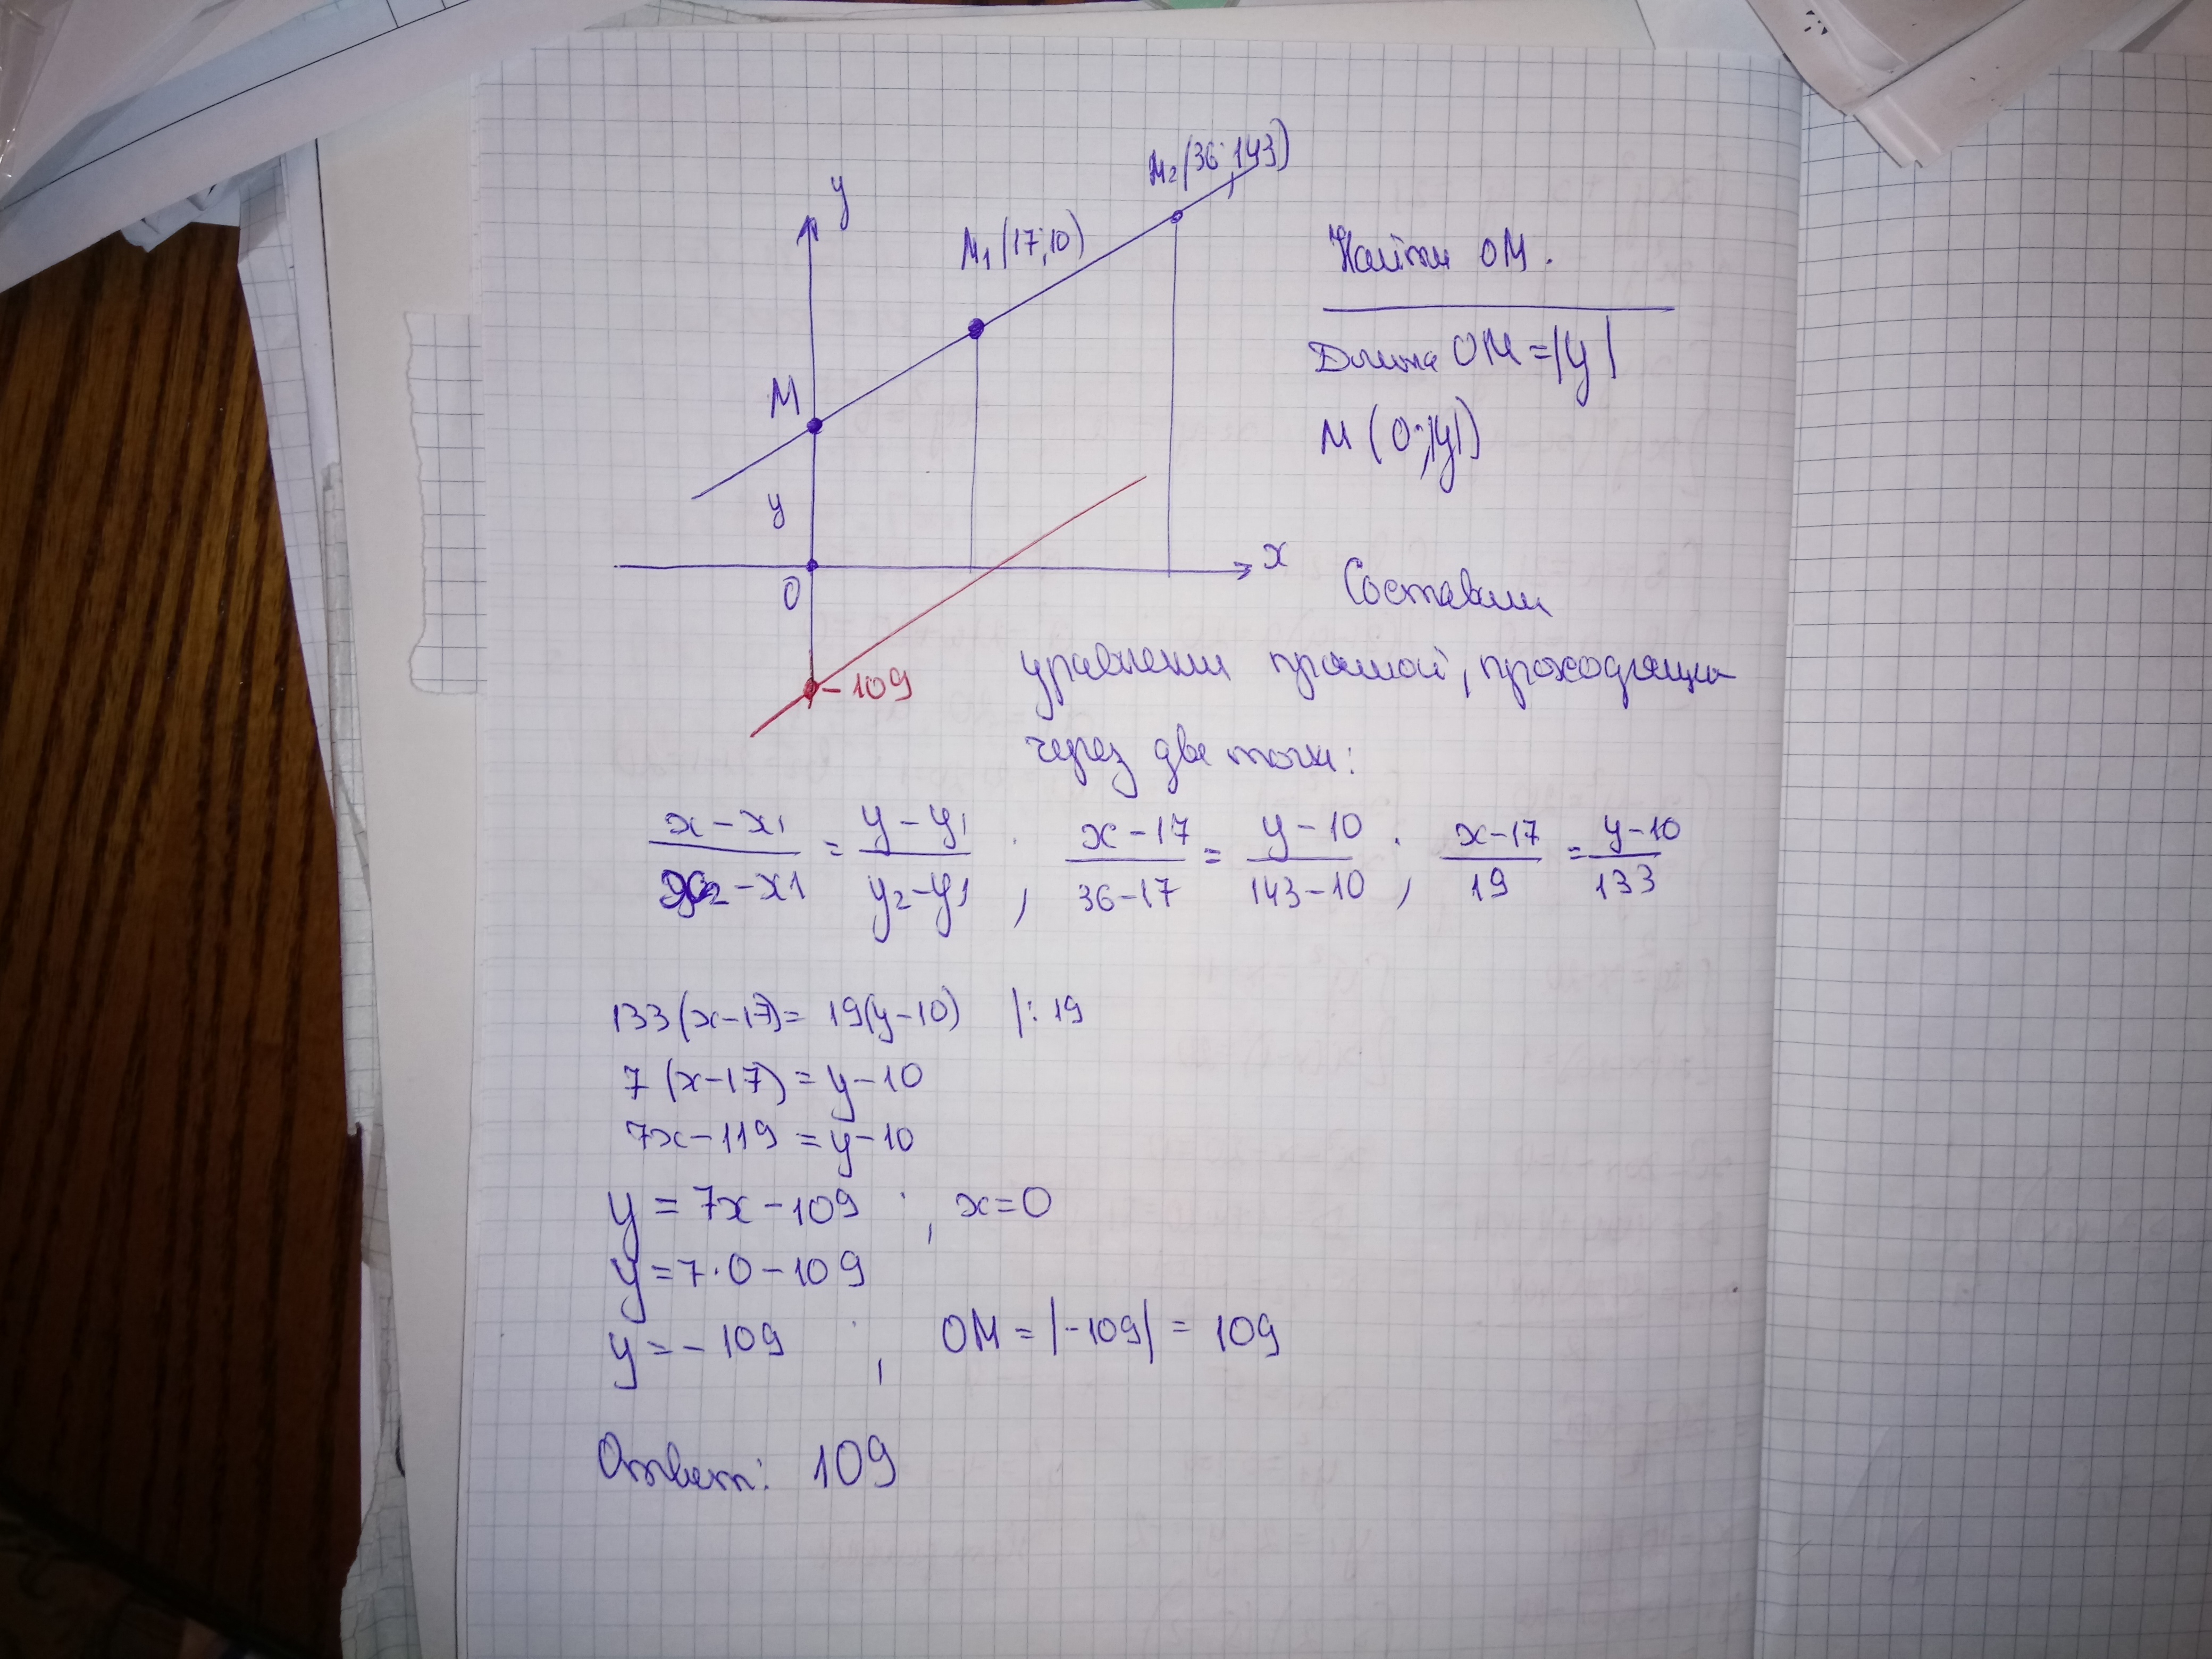 y
M₂(36; 143)
M₁(17; 10)
Найти OM.
Длина OM = |y|
M
M (0; |y|)
y
x
O
Составим
-109
уравнении прямой, проходящи
через две точки:
(x - x₁)/(x₂ - x1) = (y - y₁)/(y₂ - y₁) ; (x - 17)/(36 - 17) = (y - 10)/(143 - 10) ; (x - 17)/19 = (y - 10)/133
133(x - 17) = 19(y - 10) |: 19
7 (x - 17) = y - 10
7x - 119 = y - 10
y = 7x - 109 ; x = 0
y = 7 · 0 - 109
y = - 109 ; OM = |-109| = 109
Ответ: 109